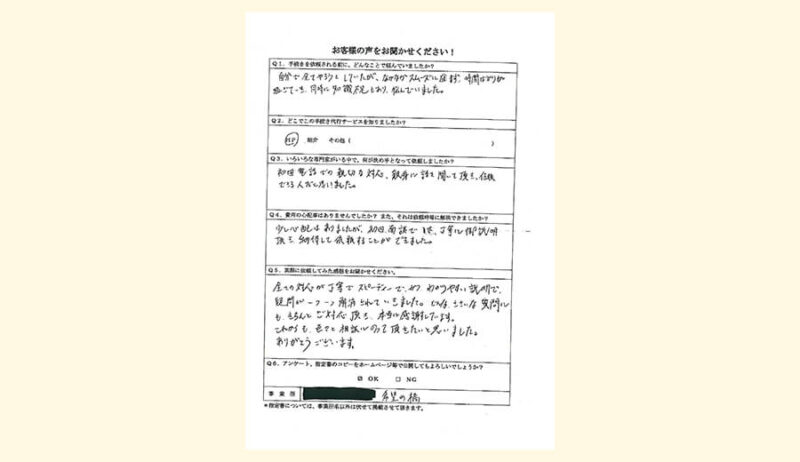 お客様の声をお聞かせください！
Q1．手続きを依頼される前に、どんなことで悩んでいましたか？
自分で全てやろうとしていたが、なかなかスムーズに進まず、時間ばかりが
過ぎていき、同時に知識不足もあり、悩んでいました。
Q2．どこでこの手続き代行サービスを知りましたか？
HP 紹介 その他（ ）
Q3．いろいろな専門家がいる中で、何が決め手となって依頼しましたか？
初回電話での親切な対応、親身に話を聞いて頂き、信頼
できる人だと思いました。
Q4．費用の心配事はありませんでしたか？また、それは依頼時等に解決できましたか？
少し心配はありましたが、初回面談で、丁寧に御説明
頂き、納得して依頼することができました。
Q5．実際に依頼してみた感想をお聞かせください。
全ての対応が丁寧でスピーディーで、かつ、わかりやすい説明で、
疑問が一つ一つ解消されていきました。どんな小さな質問に
も、きちんとご対応頂き、本当に感謝しています。
これからも、色々と相談にのって頂きたいと思いました。
ありがとうございます。
Q6．アンケート、指定書のコピーをホームページ等で公開してもよろしいでしょうか？
☑ OK □ NG
事業所 希望の橋
＊指定書については、事業所名以外は伏せて掲載させて頂きます。